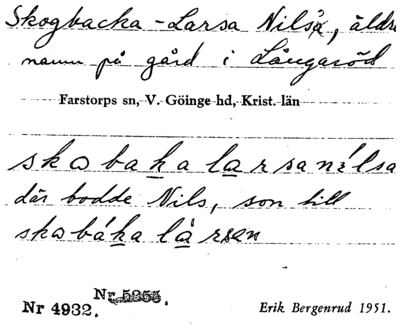 Skogbacka-Larsa Nilsa, äldre
namn på gård i Långaröd
Farstorps sn, V. Göinge hd, Krist. län
skobaka larsanilsa
där bodde Nils, son till
skobáka làrsen
Nr 5255.
Nr 4932.
Erik Bergenrud 1951.